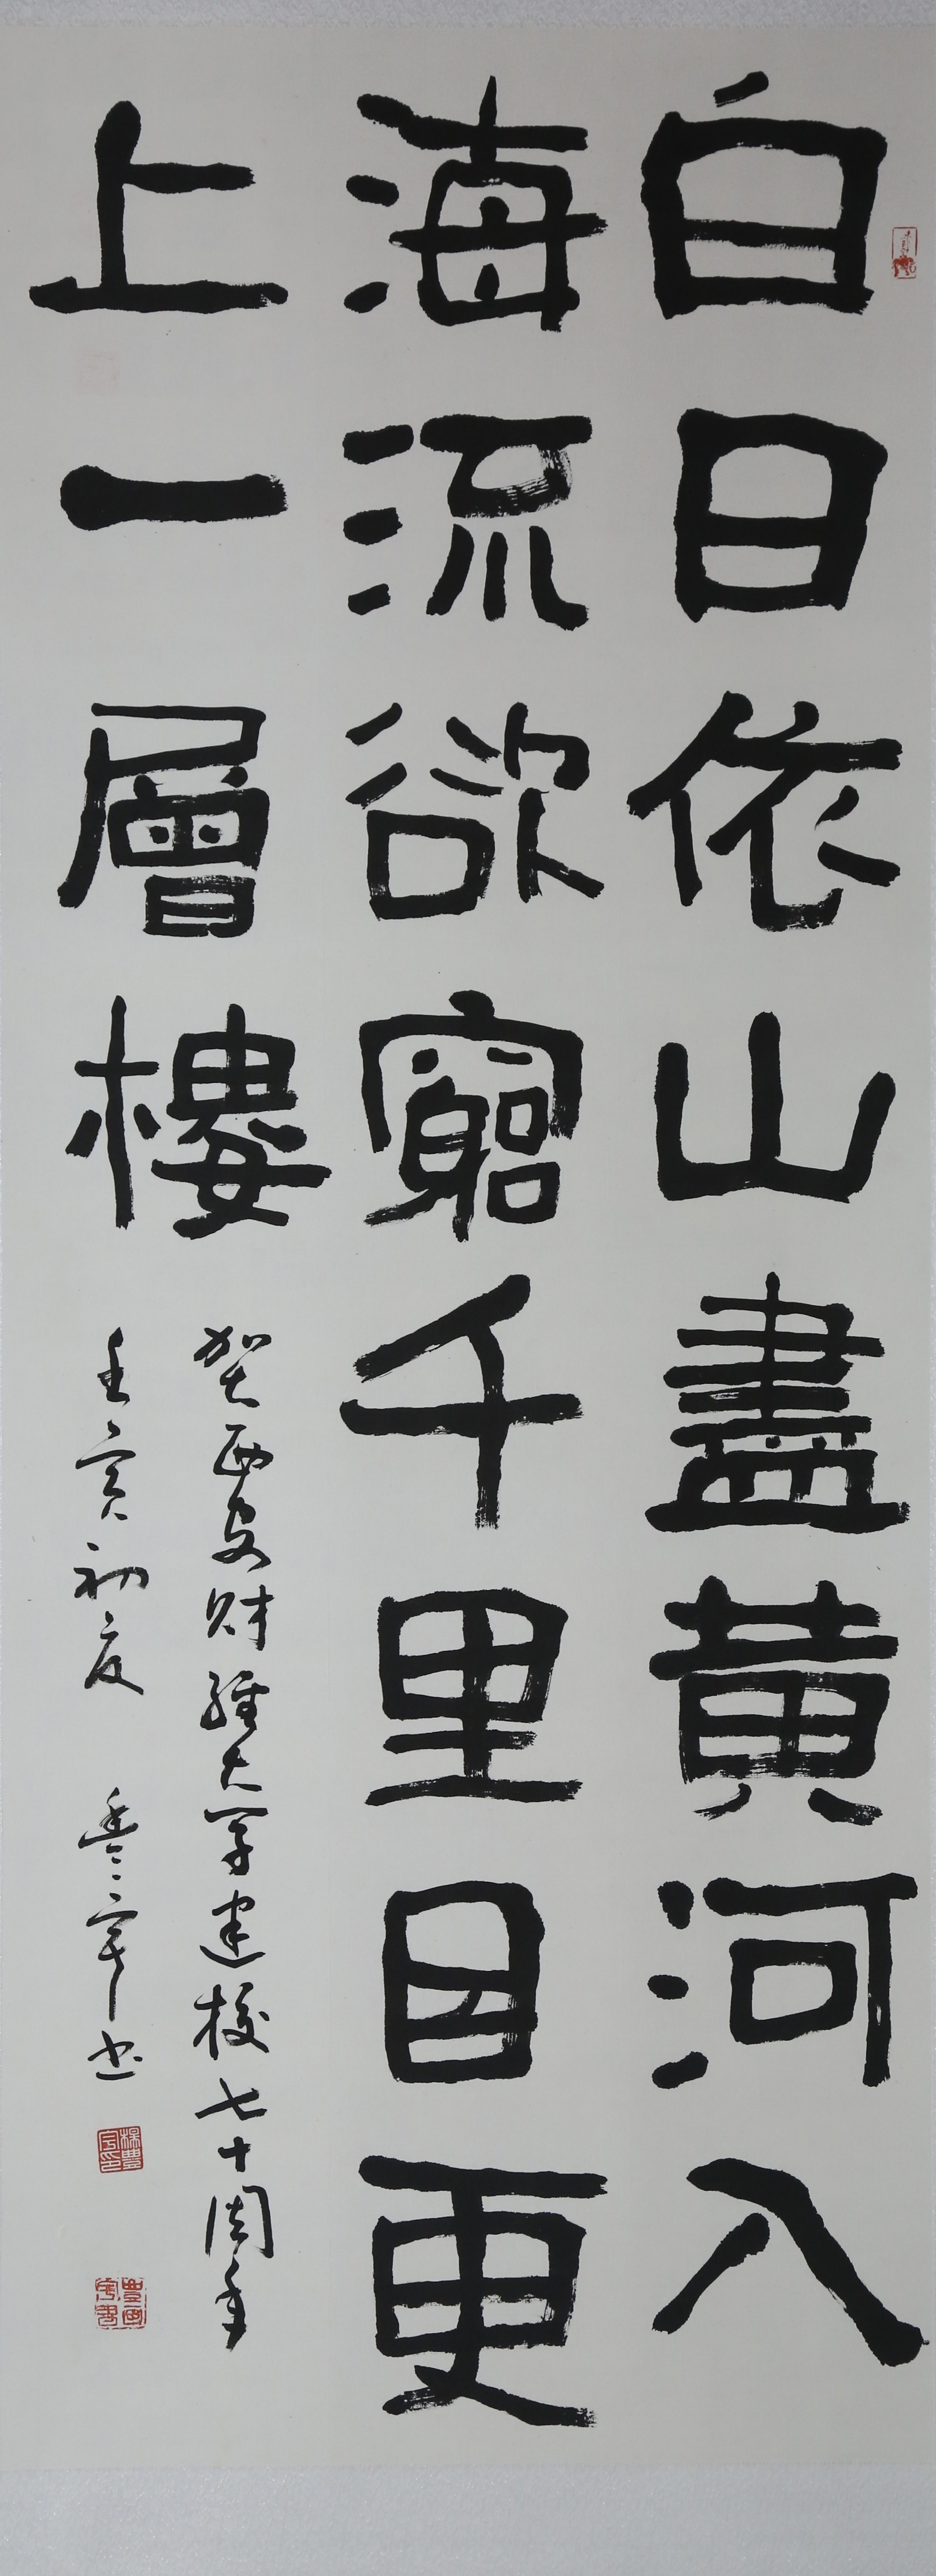 白日依山盡黃河入
海流欲窮千里目更
上一層樓
賀西安財經大學建校七十周年
壬寅初夏 豐宇書